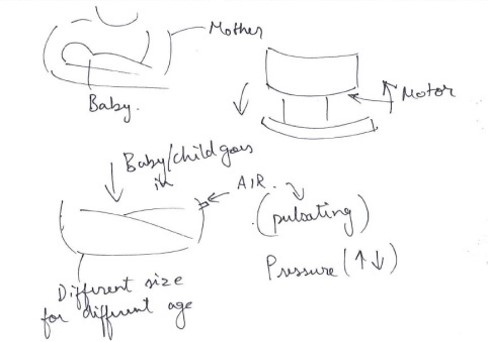 Mother
Baby.
Motor
Baby/child goes
in
AIR.
(pulsating)
Pressure (↑↓)
Different size
for different age